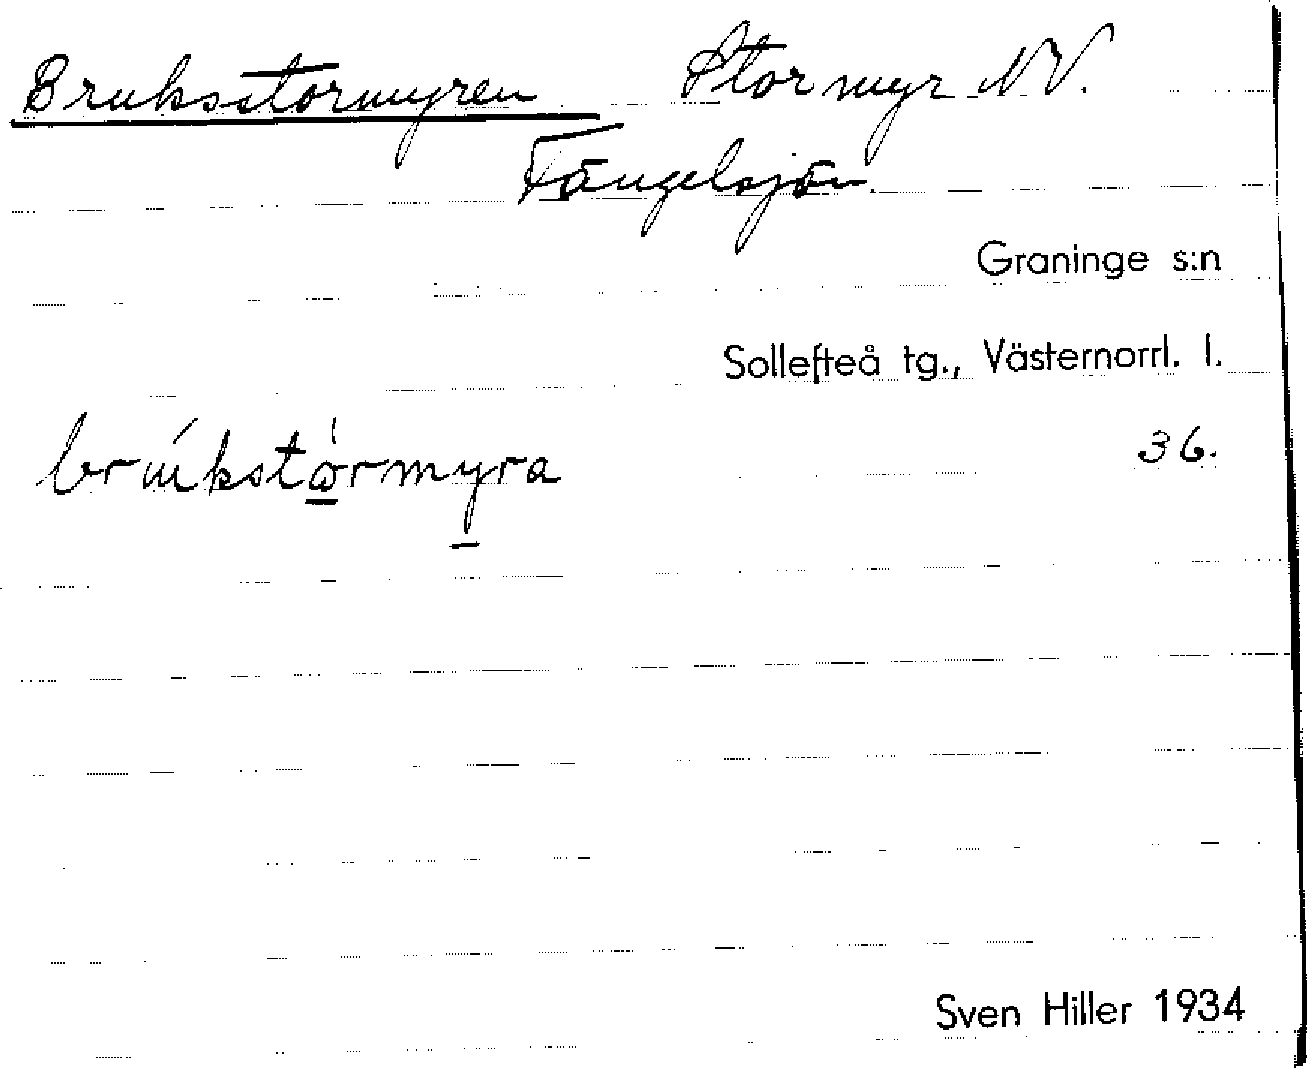 Bruksstormyren Stor myr NV.
Fängelsjön.
Graninge s:n
Sollefteå tg., Västernorrl. l.
brúkstòrmyra 36.
Sven Hiller 1934